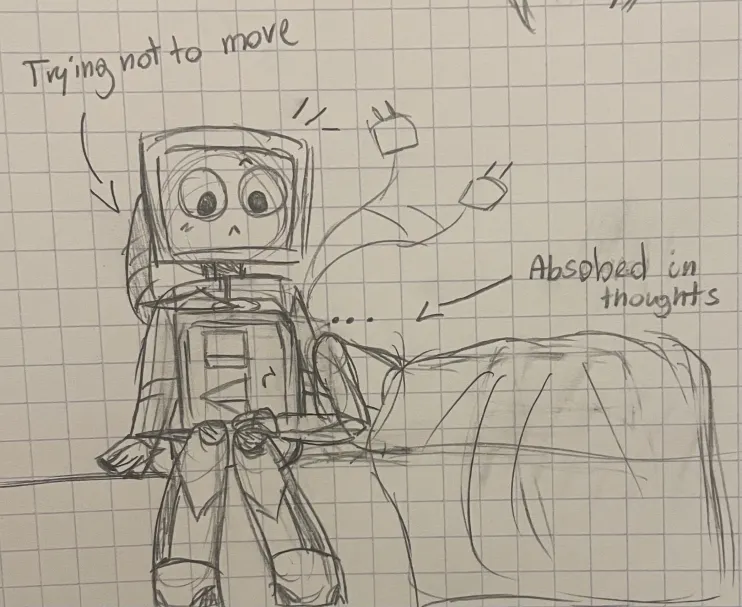 Trying not to move
Absobed in
thoughts